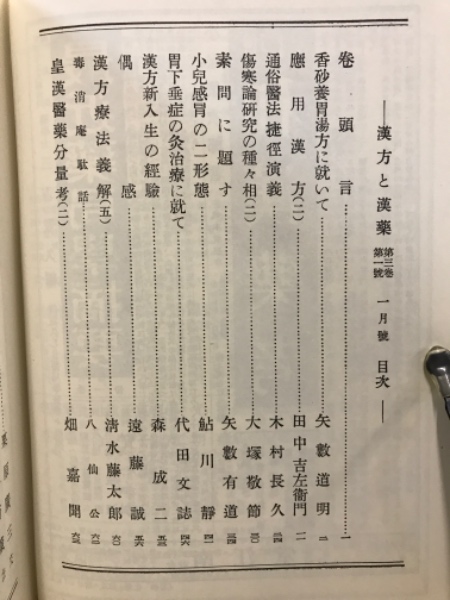 漢方と漢藥 第三卷 第一號 一月號 目次
卷頭言 一
香砂養胃湯方に就いて 矢數道明 二
應用漢方(二) 田中吉左衞門 一一
通俗醫法捷徑演義 木村長久 二四
傷寒論研究の種々相(二) 大塚敬節 三〇
素問に題す 矢數有道 三四
小兒感冒の二形態 鮎川靜 四一
胃下垂症の灸治療に就て 代田文誌 四六
漢方新入生の經驗 森成二 五二
偶感 遠藤誠 五六
漢方療法義解(五) 淸水藤太郎 六〇
毒消庵耽話 八仙公 六二
皇漢醫藥分量考(二) 畑嘉聞 六三